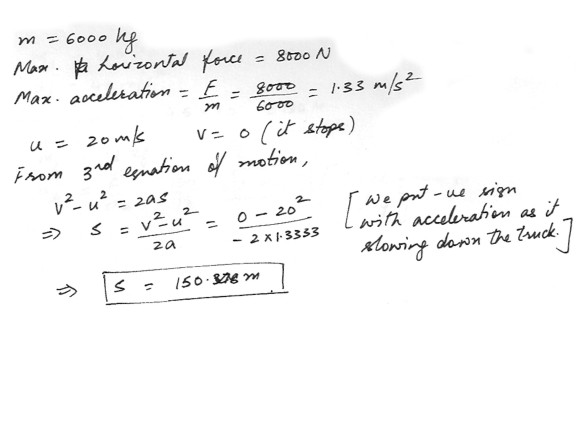 m = 6000 kg
Max. horizontal force = 8000 N
Max. acceleration = F/m = 8000/6000 = 1.33 m/s²
u = 20 m/s   v = 0 (it stops)
From 3rd equation of motion,
v² - u² = 2as
⇒ s = (v² - u²)/2a = (0 - 20²)/(- 2 × 1.3333)
[We put -ve sign
with acceleration as it
slowing down the truck.]
⇒ s = 150. m